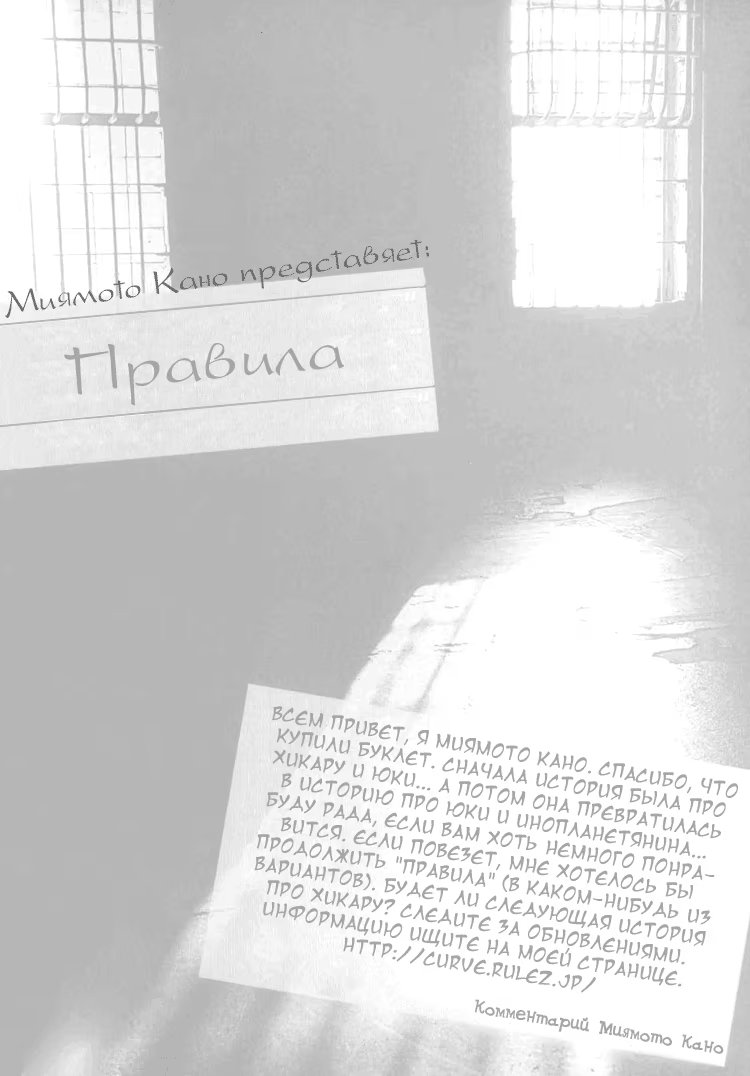 Миямото Кано представяет:
Правила
ВСЕМ ПРИВЕТ, Я МИЯМОТО КАНО. СПАСИБО, ЧТО
КУПИЛИ БУКЛЕТ. СНАЧАЛА ИСТОРИЯ БЫЛА ПРО
ХИКАРУ И ЮКИ... А ПОТОМ ОНА ПРЕВРАТИЛАСЬ
В ИСТОРИЮ ПРО ЮКИ И ИНОПЛАНЕТЯНИНА...
БУДУ РАДА, ЕСЛИ ВАМ ХОТЬ НЕМНОГО ПОНРА-
ВИТСЯ. ЕСЛИ ПОВЕЗЕТ, МНЕ ХОТЕЛОСЬ БЫ
ПРОДОЛЖИТЬ "ПРАВИЛА" (В КАКОМ-НИБУДЬ ИЗ
ВАРИАНТОВ). БУДЕТ ЛИ СЛЕДУЮЩАЯ ИСТОРИЯ
ПРО ХИКАРУ? СЛЕДИТЕ ЗА ОБНОВЛЕНИЯМИ.
ИНФОРМАЦИЮ ИЩИТЕ НА МОЕЙ СТРАНИЦЕ.
HTTP://CURVE.RULEZ.JP/
Комментарий Миямото Кано